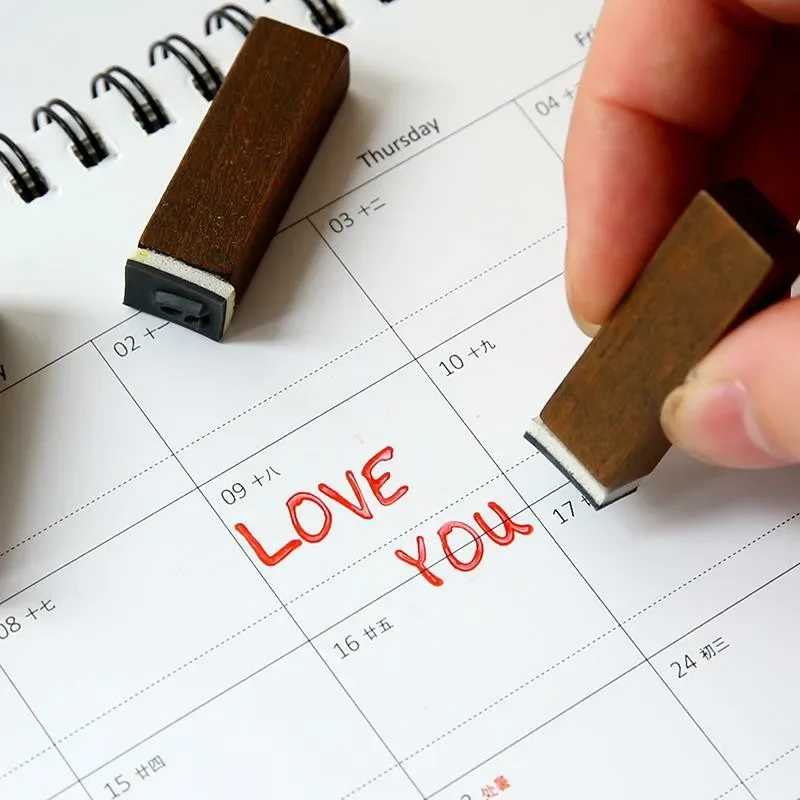 Thursday
03 十二
04
02 十一
10 十九
09 十八
LOVE
YOU
17
08 十七
16 廿五
24 初三
15 廿四
处暑